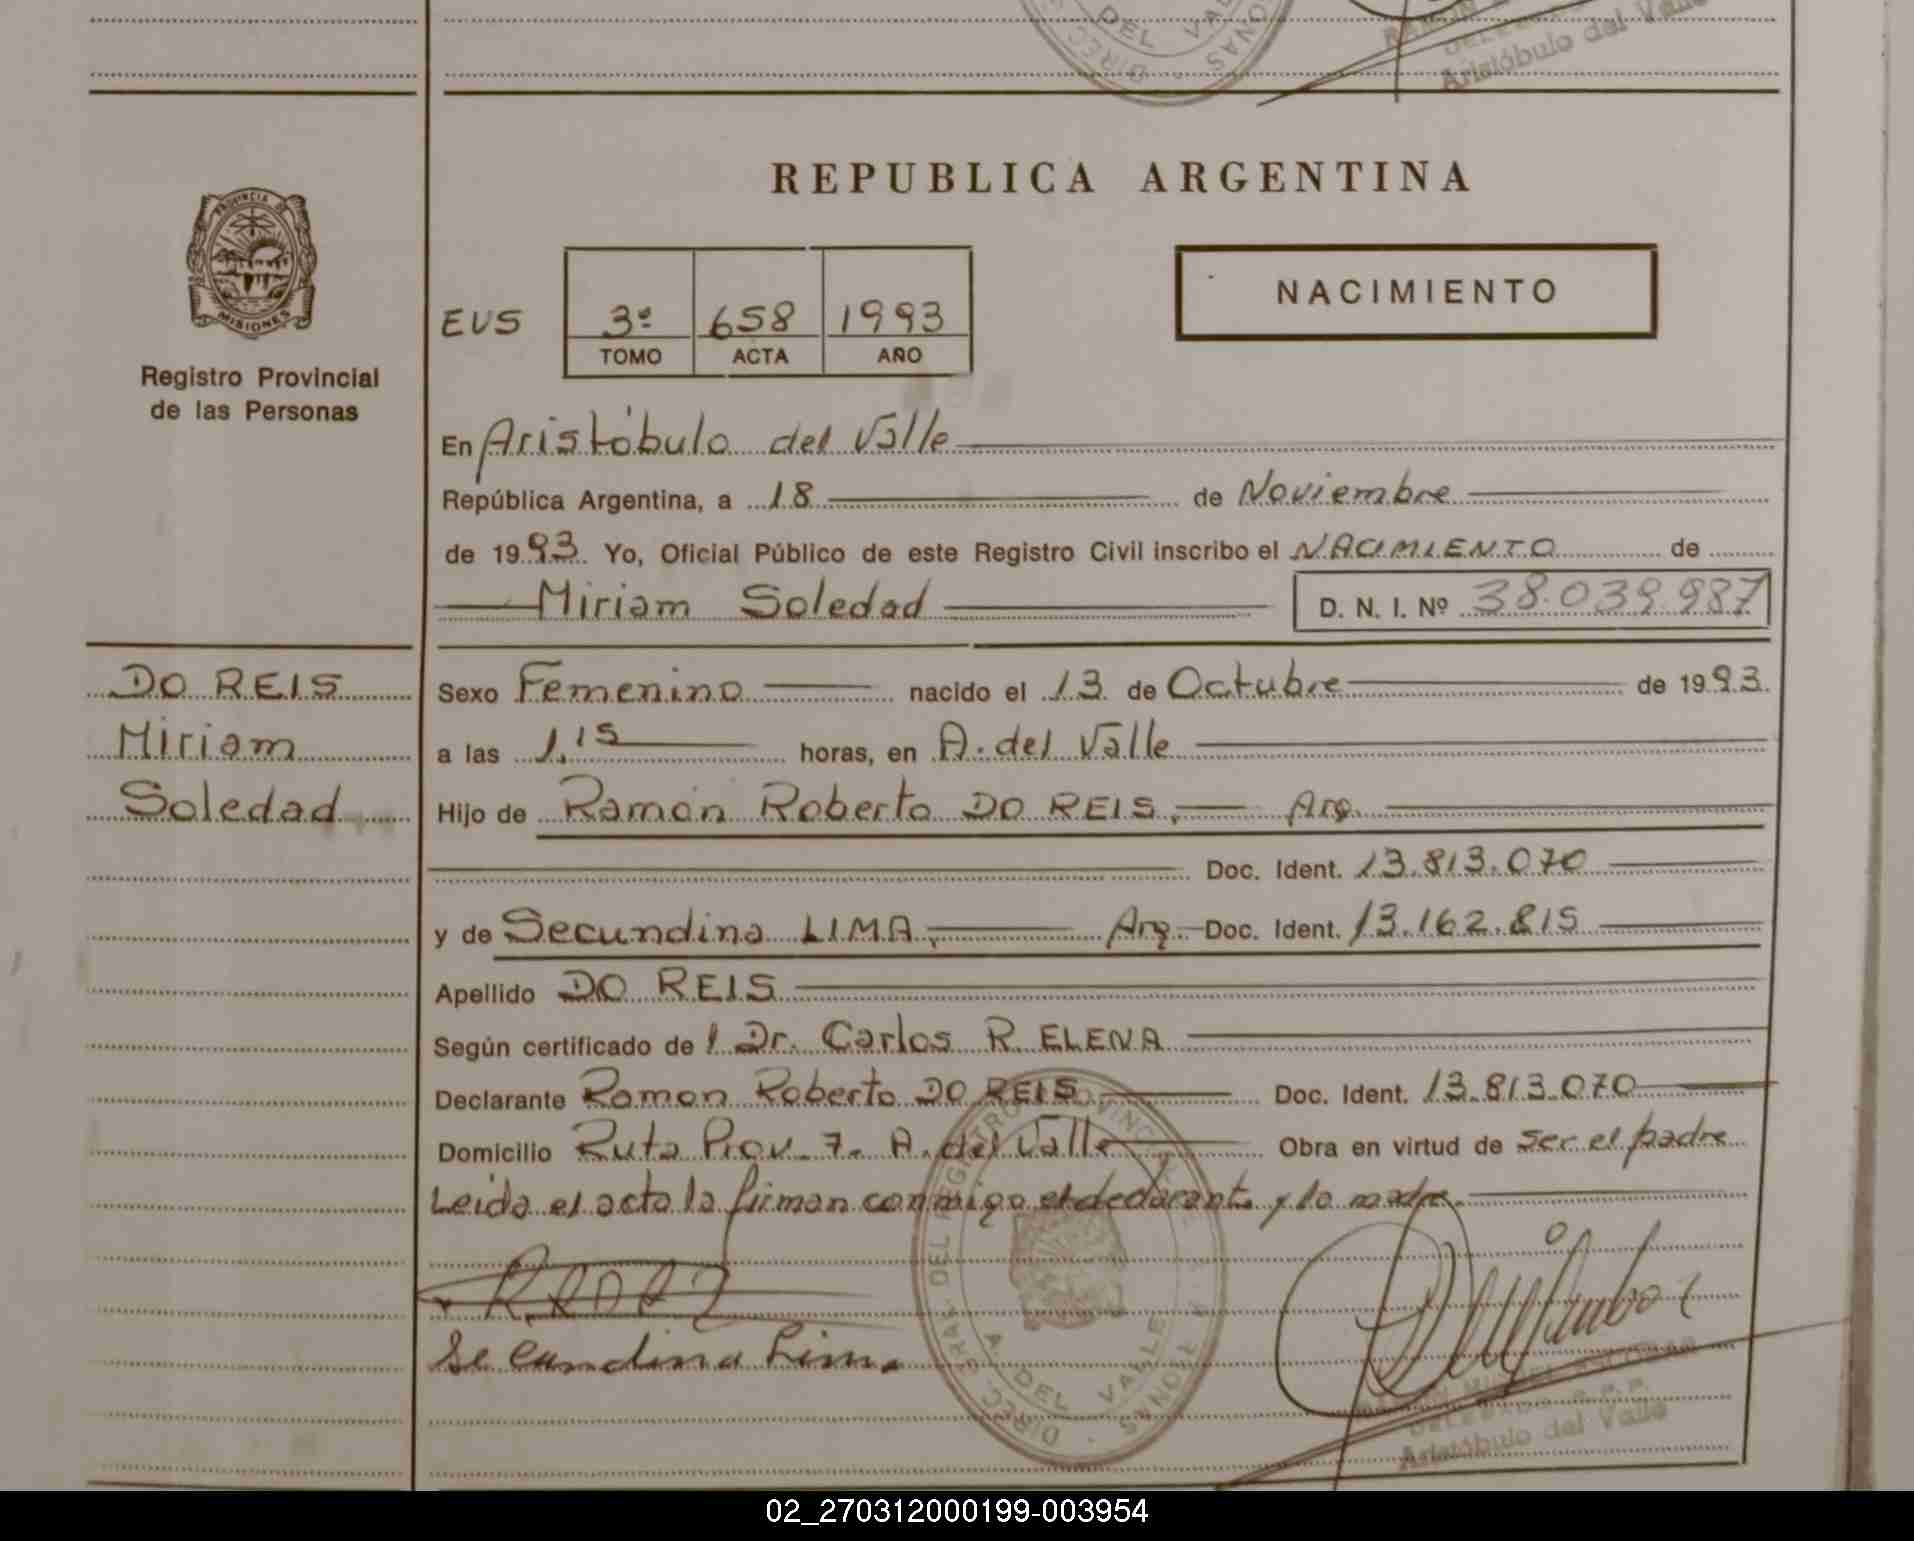 DEL VALLE
Aristóbulo del Valle
PROVINCIA DE
MISIONES
Registro Provincial
de las Personas
REPUBLICA ARGENTINA
NACIMIENTO
EUS 3º 658 1993
TOMO ACTA AÑO
En Aristóbulo del Valle
República Argentina, a 18 de Noviembre
de 1993 Yo, Oficial Público de este Registro Civil inscribo el NACIMIENTO de
Miriam Soledad D. N. I. Nº 38.039.987
DO REIS
Miriam
Soledad
Sexo Femenino nacido el 13 de Octubre de 1993.
a las 1,15 horas, en A. del Valle
Hijo de Ramón Roberto DO REIS, Arg.
Doc. Ident. 13.813.070
y de Secundina LIMA, Arg. Doc. Ident. 13.162.815
Apellido DO REIS
Según certificado de l Dr. Carlos R. ELENA
Declarante Ramon Roberto DO REIS Doc. Ident. 13.813.070
Domicilio Ruta Prov. 7. A. del Valle Obra en virtud de ser el padre
Leida el acta la firman conmigo el declarante y la madre.
Secundina Lima
DIREC. GRAL. DEL REGISTRO PROVINCIAL
MISIONES
A. DEL VALLE
Aristóbulo del Valle
02_270312000199-003954